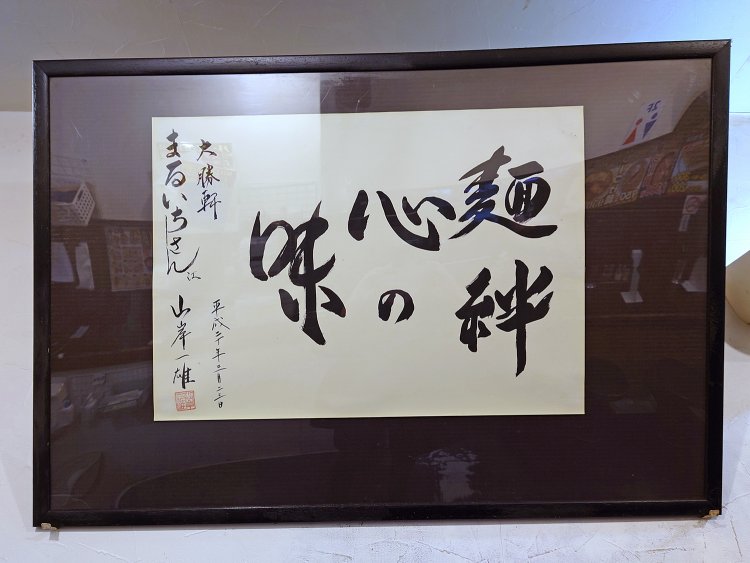 麺絆
心の
味
大勝軒
平成二十年三月二三日
まるいちさん江
山岸一雄